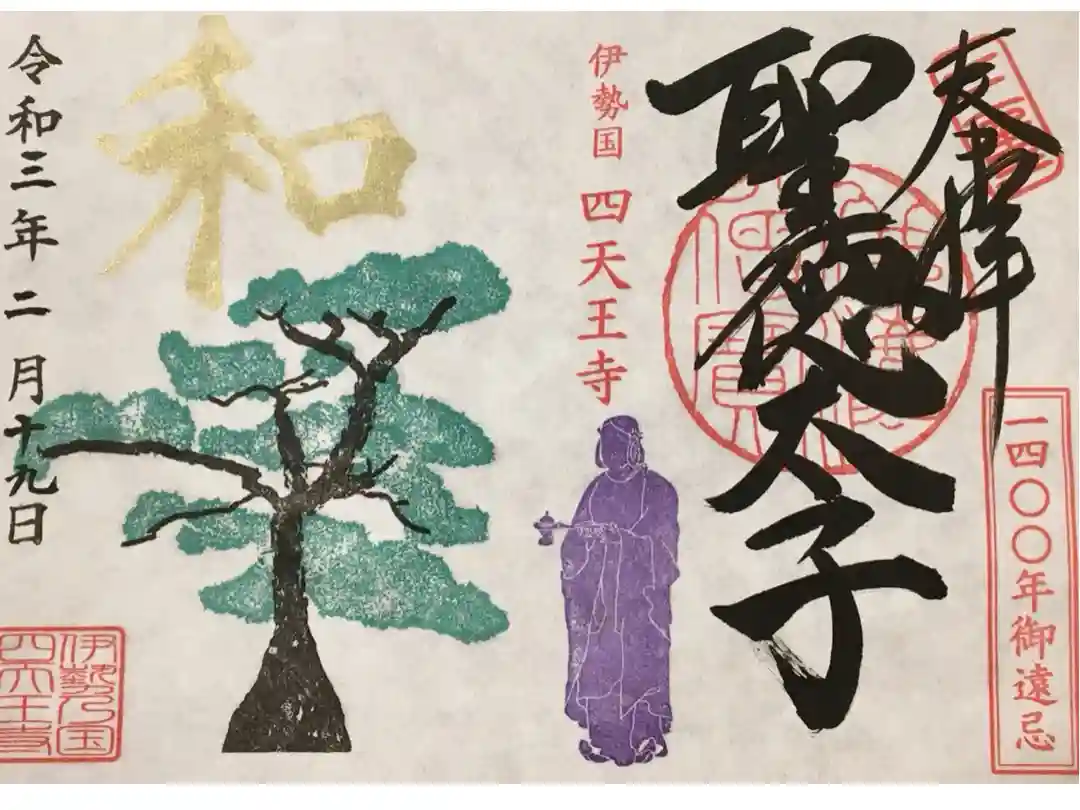 奉拝
一四〇〇年御遠忌
聖徳太子
伊勢国 四天王寺
和
令和三年 二月十九日
伊勢乃国
四天王寺